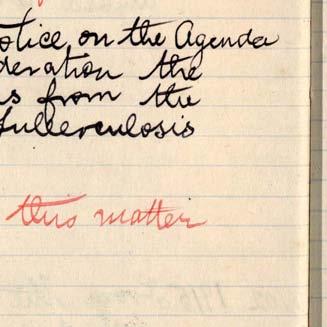 otice on the Agenda
deration the
s from the
Tuberculosis
this matter